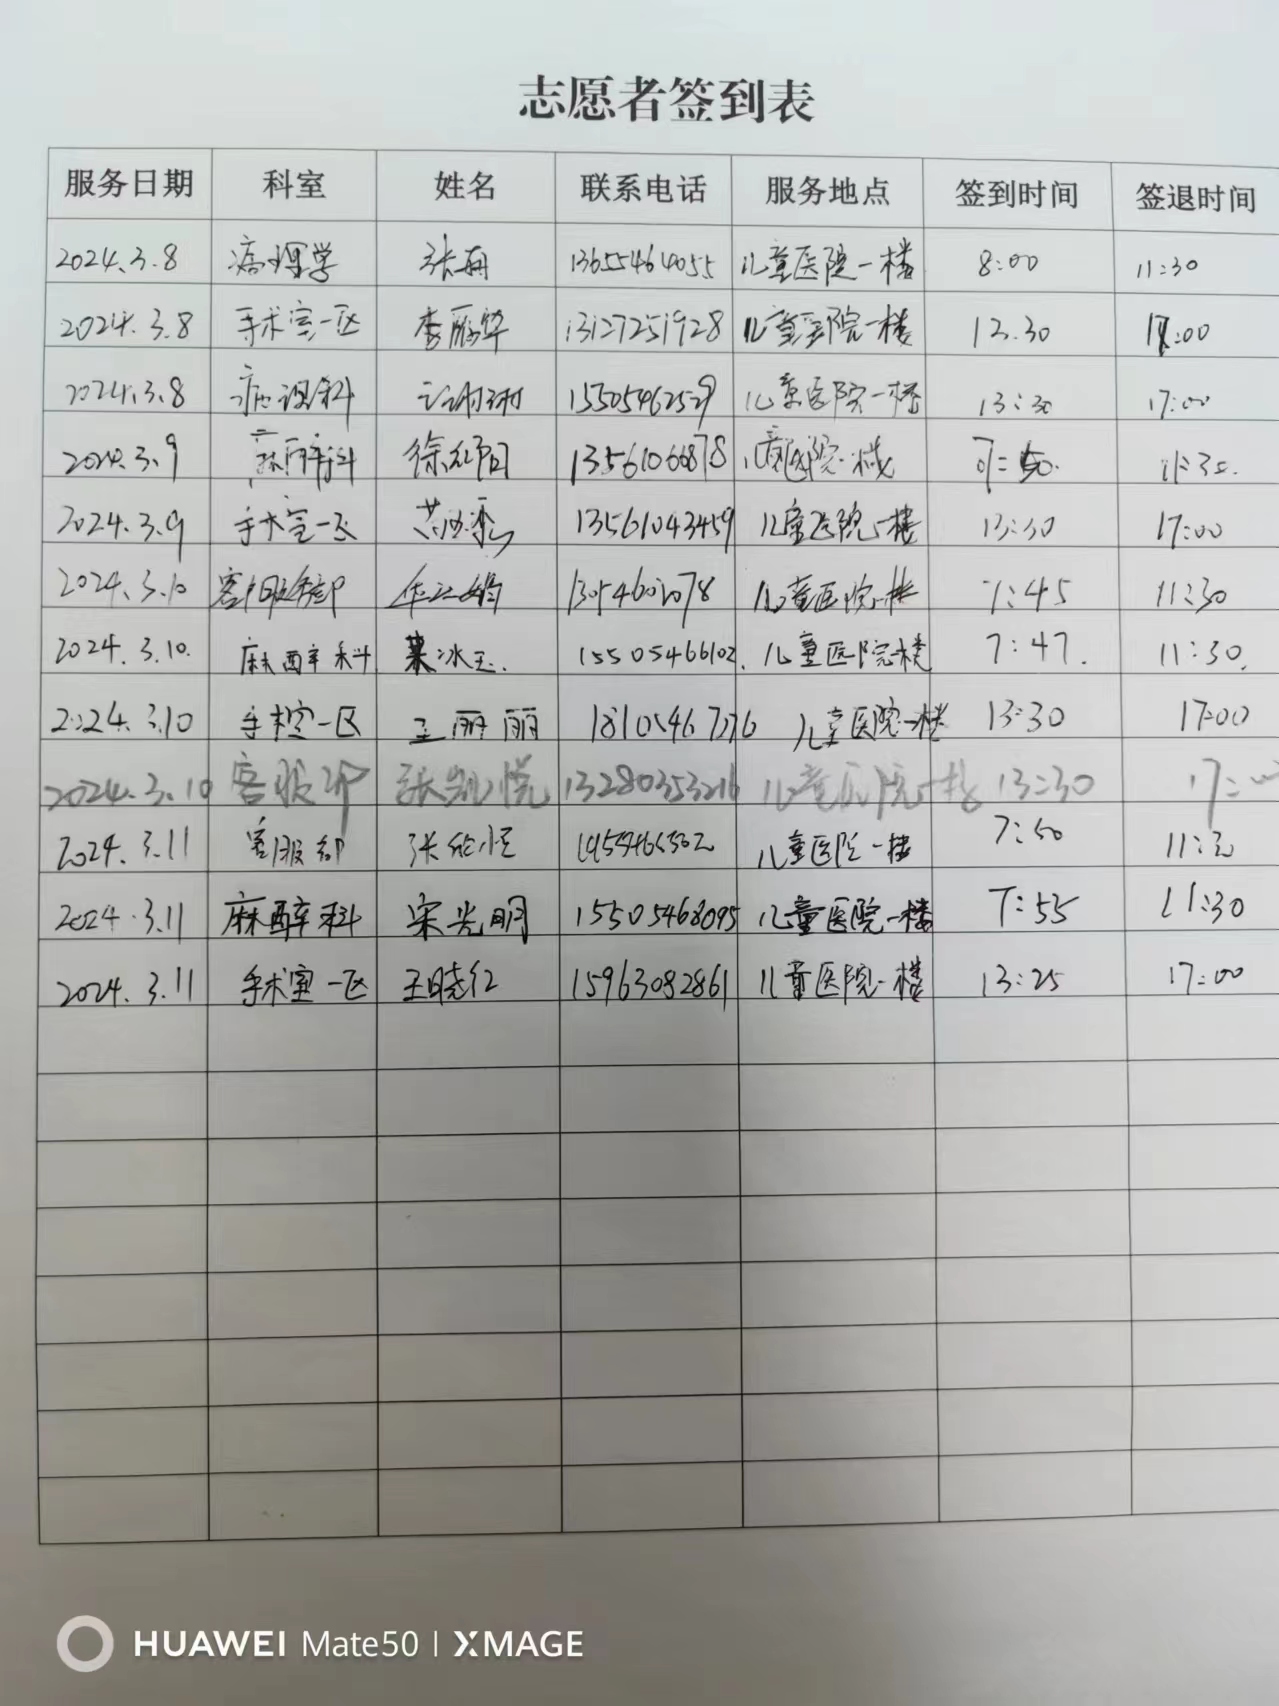 志愿者签到表
服务日期 科室 姓名 联系电话 服务地点 签到时间 签退时间
2024.3.8 病理学 张 13655464055 儿童医院一楼 8:00 11:30
2024.3.8 手术室一区 李 13127251928 儿童医院一楼 12.30 17:00
2024.3.8 15505462529 儿童医院一楼 13:30 17:00
2024.3.9 麻醉科 徐 13561066878 儿童医院一楼 7:50. 11:30.
2024.3.9 手术室一区 13561043459 儿童医院一楼 13:30 17:00
2024.3.10 客户服务部 儿童医院一楼 7:45 11:30
2024.3.10. 麻醉科 冰玉. 15505466102. 儿童医院一楼 7:47. 11:30.
2024.3.10 手术室一区 王丽丽 儿童医院一楼 13:30 17:00
2024.3.10 客服部 张凯悦 13280353216 儿童医院一楼 13:30 17:00
2024.3.11 客服部 张 儿童医院一楼 7:50 11:30
2024.3.11 麻醉科 宋光明 15505468095 儿童医院一楼 7:55 11:30
2024.3.11 手术室一区 王晓红 15963082861 儿童医院一楼 13:25 17:00
HUAWEI Mate50 | XMAGE